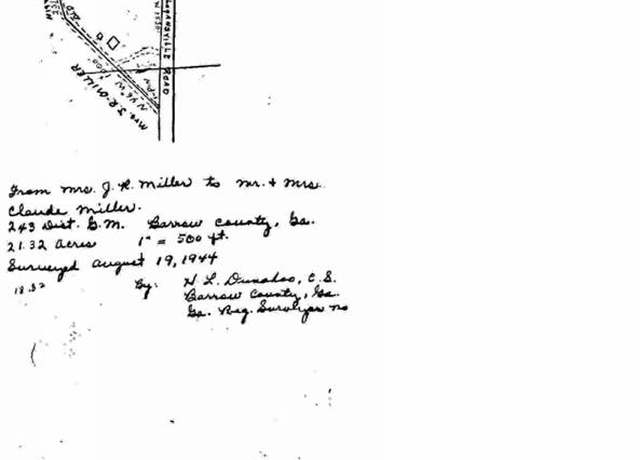 OLD
LOGANSVILLE ROAD
MRS. J.R. MILLER
N 46° W
From Mrs. J. R. Miller to Mr. + Mrs.
Claude Miller.
243 Dist. G.M. Barrow County, Ga.
21.32 Acres 1" = 500 ft.
Surveyed August 19, 1944
18.32 By: H L. Dunahoo, C.S.
Barrow County, Ga.
Ga. Reg. Surveyor No